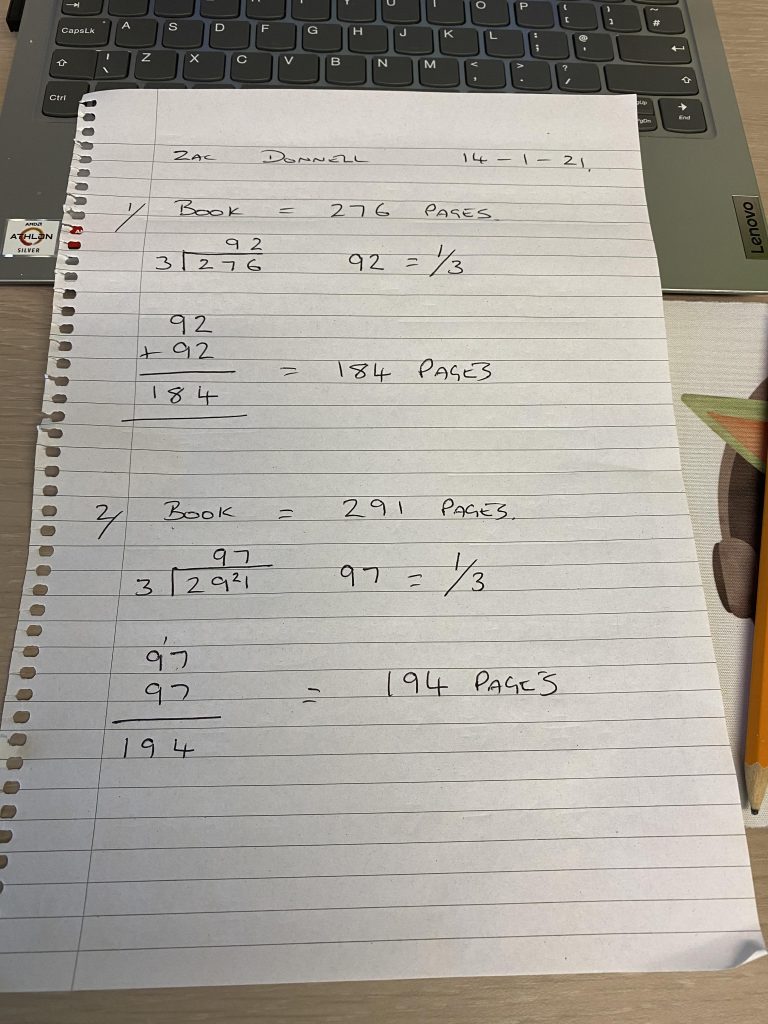 U I O P { [ } ] ~ #
CapsLk A S D F G H J K L : ; @ '
| \ Z X C V B N M < , > . ? /
Ctrl PgUp PgDn End
AMD
ATHLON
SILVER
Lenovo
ZAC DONNELL 14-1-21.
1/ BOOK = 276 PAGES.
92
3 276 92 = 1/3
92
+ 92
184 = 184 PAGES
2/ BOOK = 291 PAGES.
97
3 2921 97 = 1/3
1
97
97 = 194 PAGES
194